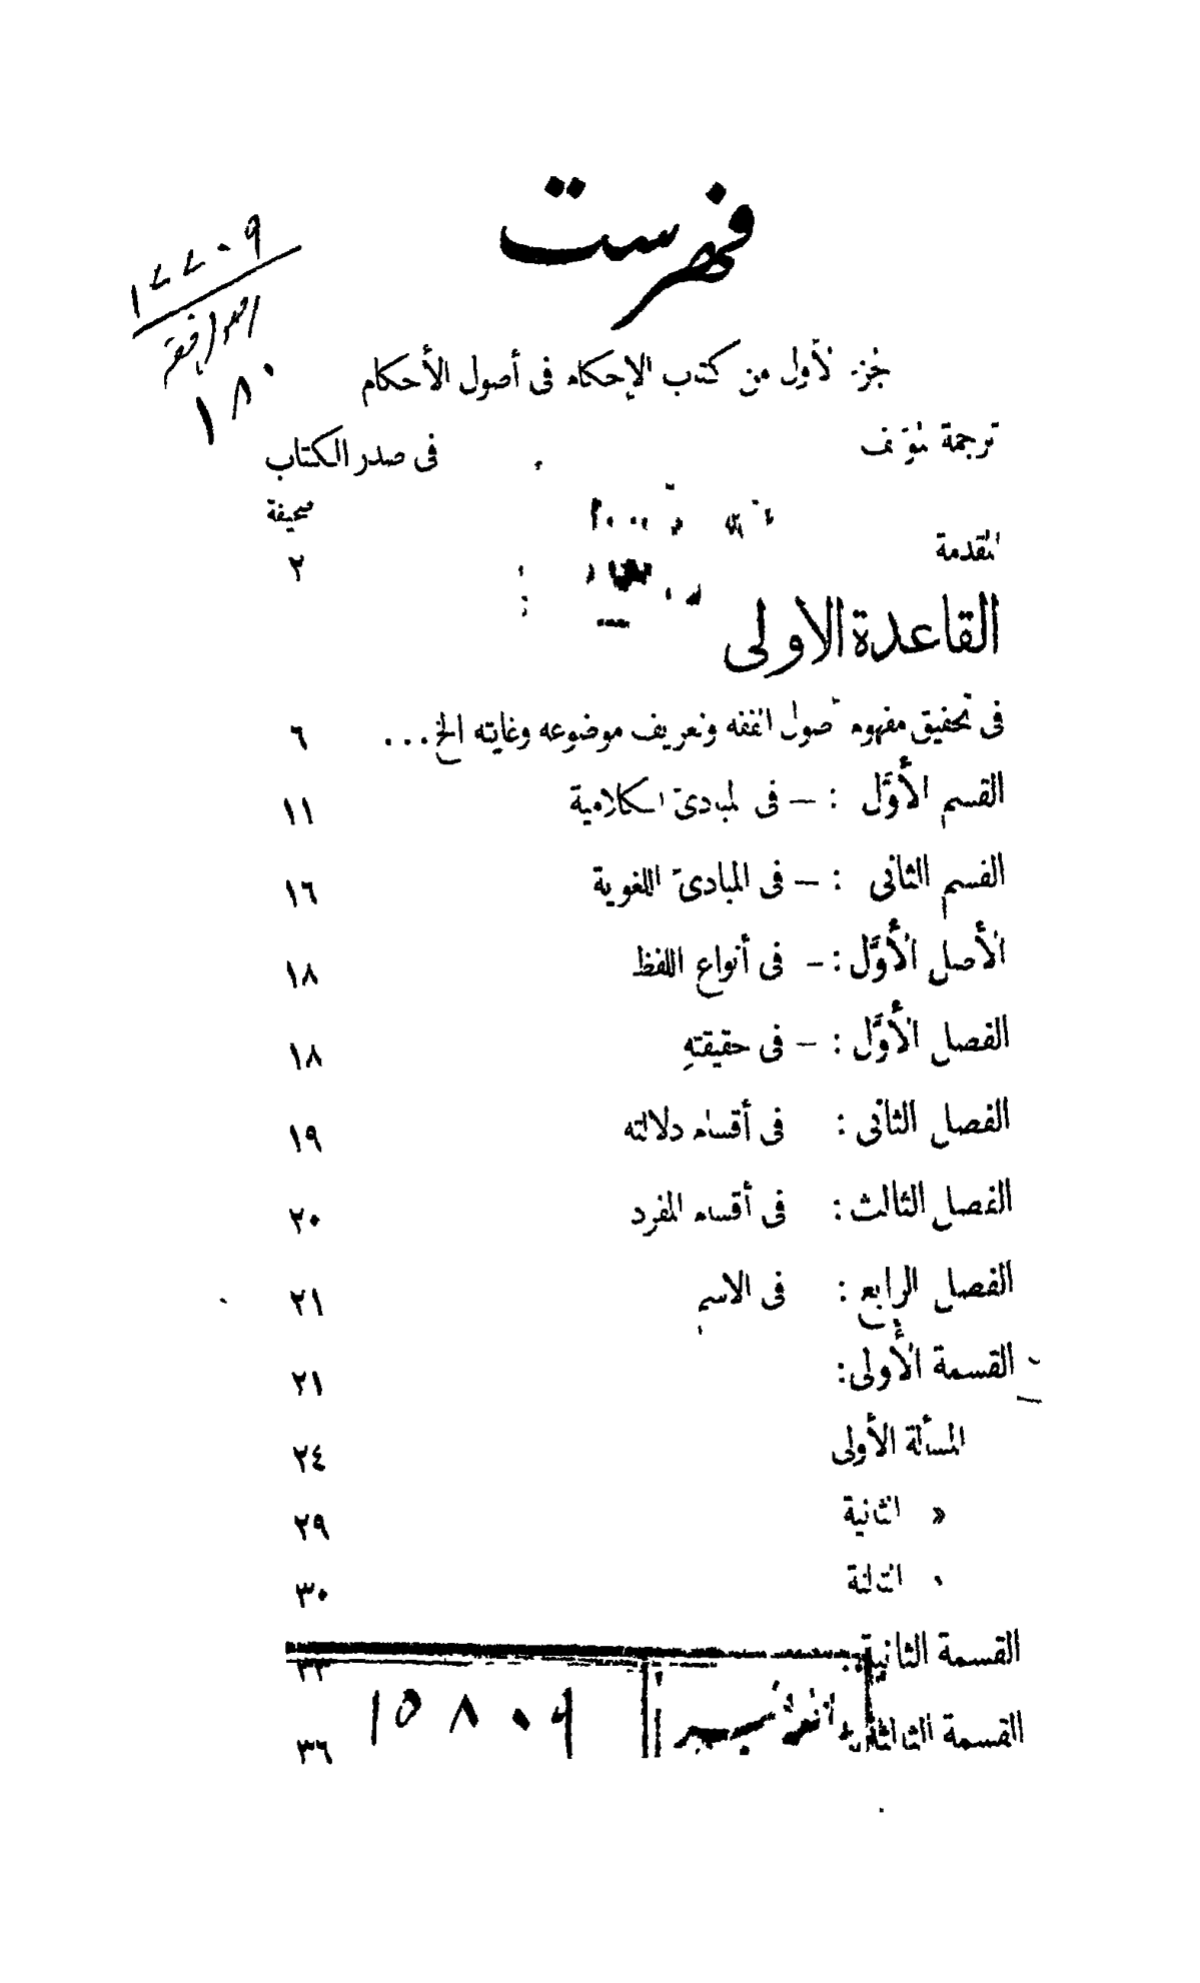 فهرست
١٧٧٠٩
اصول فقه
١٨٠
الجزء الأول من كتاب الإحكام فى أصول الأحكام
ترجمة المؤلف فى صدر الكتاب
صحيفة
المقدمة ٢
القاعدة الاولى
فى تحقيق مفهوم أصول الفقه وتعريف موضوعه وغايته الخ... ٦
القسم الأوَّل : — فى المبادئ الكلامية ١١
القسم الثانى : — فى المبادئ اللغوية ١٦
الأصل الأوَّل : — فى أنواع اللفظ ١٨
الفصل الأوَّل : — فى حقيقتهِ ١٨
الفصل الثانى : فى أقسام دلالته ١٩
الفصل الثالث : فى أقسام المفرد ٢٠
الفصل الرابع : فى الاسم ٢١
القسمة الأولى: ٢١
المسألة الأولى ٢٤
» الثانية ٢٩
» الثالثة ٣٠
القسمة الثانية: ٣٣
القسمة الثالثة ٣٦
١٥٨٠٩